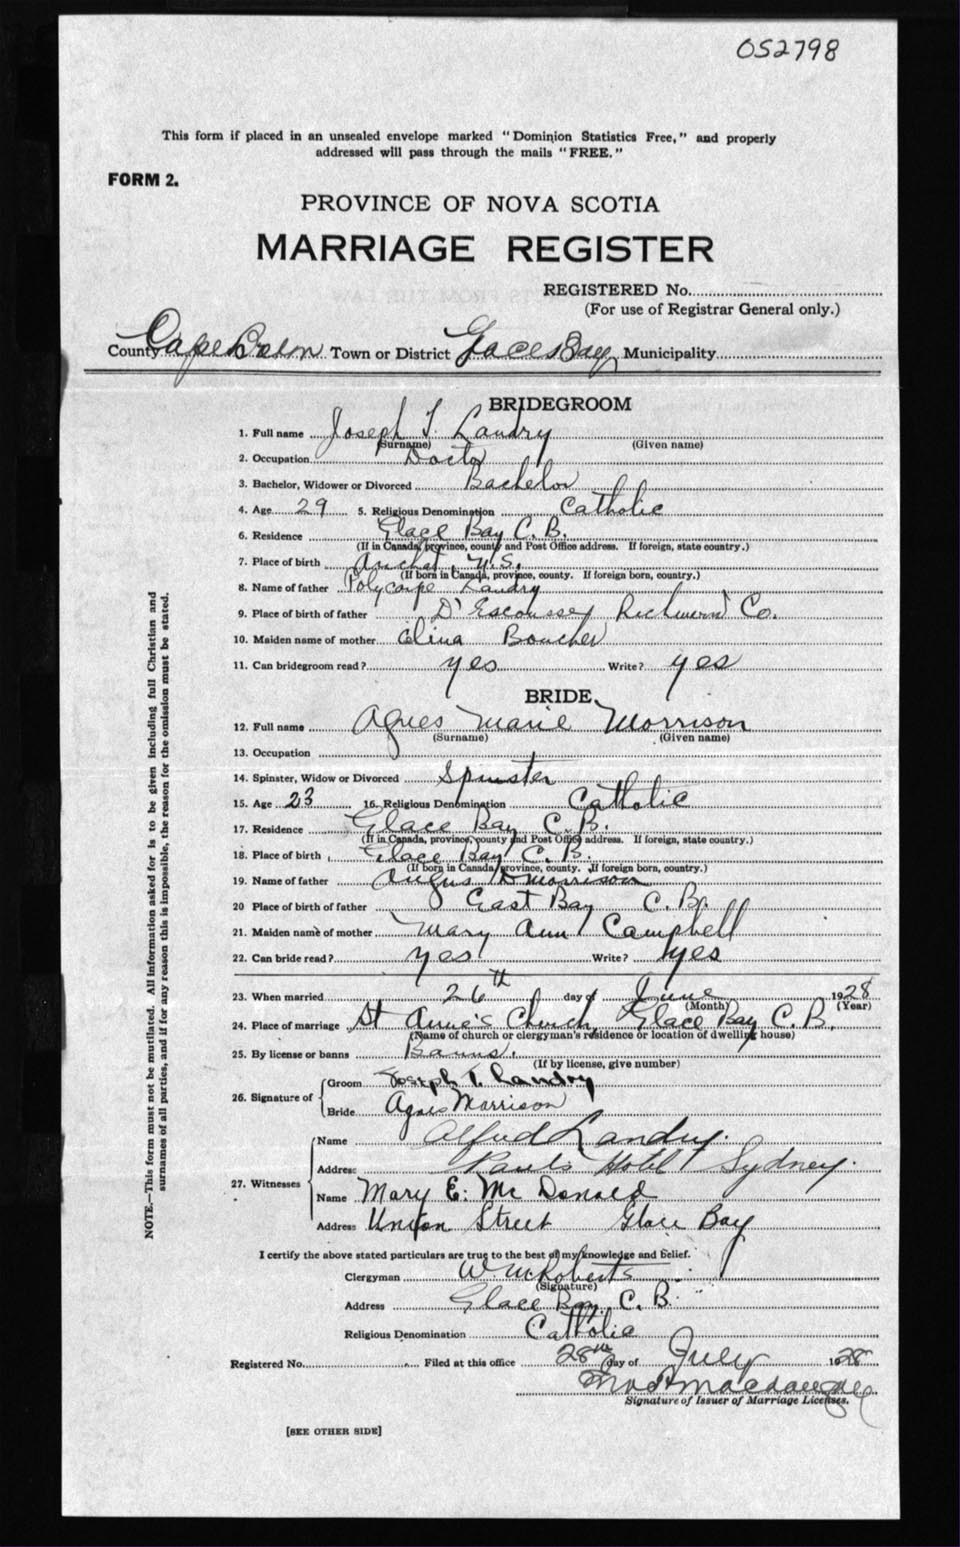 052798
This form if placed in an unsealed envelope marked "Dominion Statistics Free," and properly
addressed will pass through the mails "FREE."
FORM 2.
PROVINCE OF NOVA SCOTIA
MARRIAGE REGISTER
REGISTERED No.
(For use of Registrar General only.)
County Cape Breton Town or District Glace Bay Municipality
BRIDEGROOM
1. Full name Joseph T. Landry
(Surname) (Given name)
2. Occupation Doctor
3. Bachelor, Widower or Divorced Bachelor
4. Age 29 5. Religious Denomination Catholic
6. Residence Glace Bay C. B.
(If in Canada, province, county and Post Office address. If foreign, state country.)
7. Place of birth Arichat, N.S.
(If born in Canada, province, county. If foreign born, country.)
8. Name of father Polycarpe Landry
9. Place of birth of father D'Escoussey Richmond Co.
10. Maiden name of mother Elina Boucher
11. Can bridegroom read? yes Write? yes
BRIDE
12. Full name Agnes Marie Morrison
(Surname) (Given name)
13. Occupation
14. Spinster, Widow or Divorced Spinster
15. Age 23 16. Religious Denomination Catholic
17. Residence Glace Bay C. B.
(If in Canada, province, county and Post Office address. If foreign, state country.)
18. Place of birth Glace Bay C. B.
(If born in Canada, province, county. If foreign born, country.)
19. Name of father Angus Morrison
20 Place of birth of father East Bay C. B.
21. Maiden name of mother Mary Ann Campbell
22. Can bride read? yes Write? yes
23. When married 26th day of June 1928
(Month) (Year)
24. Place of marriage St Anne's Church, Glace Bay C. B.
(Name of church or clergyman's residence or location of dwelling house)
25. By license or banns Banns.
(If by license, give number)
26. Signature of Groom Joseph T. Landry
Bride Agnes Morrison
27. Witnesses Name Alfred Landry.
Address Pauls Hotel Sydney.
Name Mary E. McDonald
Address Union Street Glace Bay
I certify the above stated particulars are true to the best of my knowledge and belief.
Clergyman W. McRoberts
(Signature)
Address Glace Bay, C. B.
Religious Denomination Catholic
Registered No. Filed at this office 28th day of July 1928
Signature of Issuer of Marriage Licenses.
[SEE OTHER SIDE]
NOTE.—This form must not be mutilated. All information asked for is to be given including full Christian and
surnames of all parties, and if for any reason this is impossible, the reason for the omission must be stated.